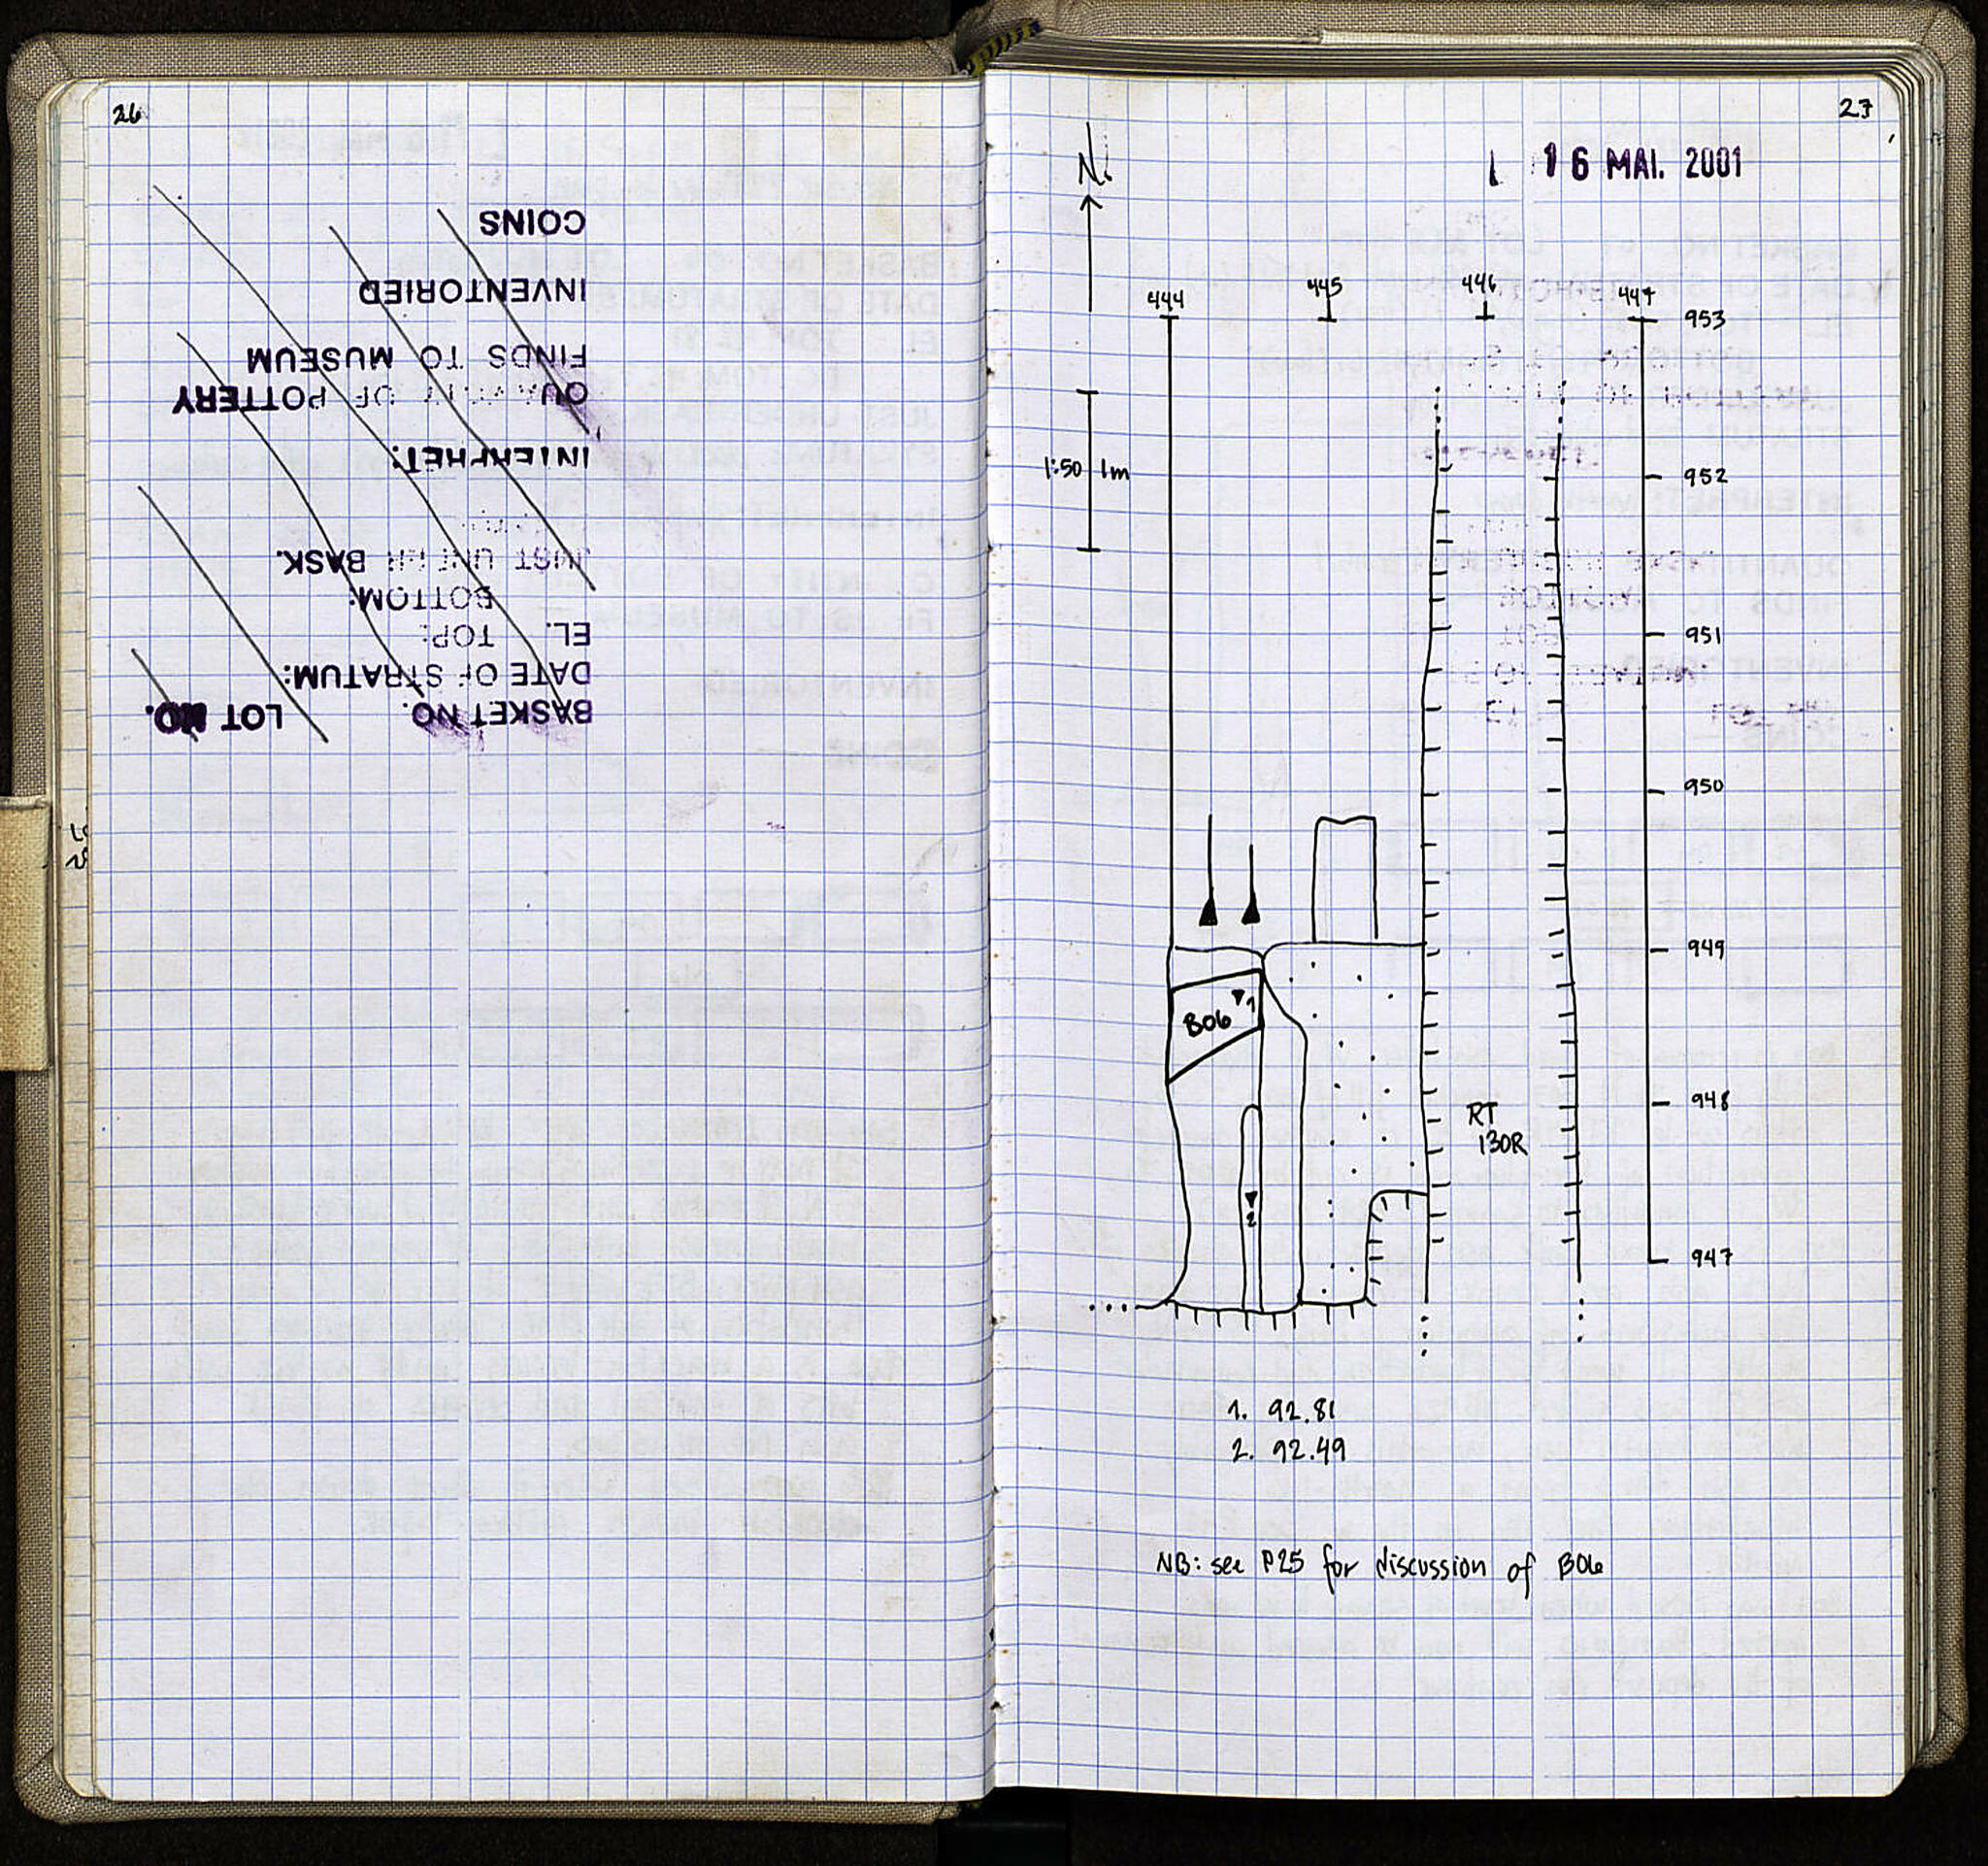 26
COINS
INVENTORIED
FINDS TO MUSEUM
QUANTITY OF POTTERY
INTERPRET.
JUST UNDER BASK.
BOTTOM:
EL. TOP:
DATE OF STRATUM:
BASKET NO. LOT NO.
27
16 MAI. 2001
N
444 445 446 447
953
1:50 1m
952
951
950
949
B06 1
948
RT
130R
2
947
1. 92.81
2. 92.49
NB: see P25 for discussion of B06